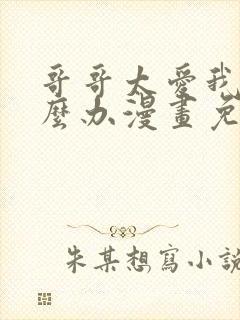 哥哥太愛我
麼办漫畫免
朱某想寫小說